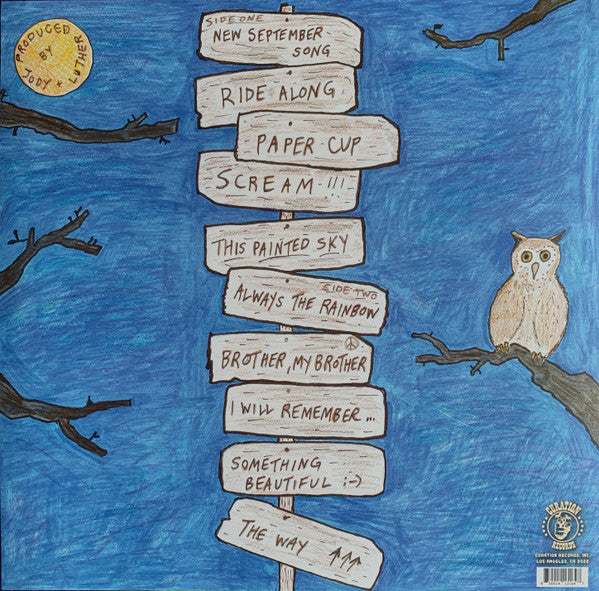 PRODUCED
BY
JODY + LUTHER
SIDE ONE
NEW SEPTEMBER
SONG
RIDE ALONG
PAPER CUP
SCREAM !!!
THIS PAINTED SKY
SIDE TWO
ALWAYS THE RAINBOW
BROTHER, MY BROTHER
I WILL REMEMBER...
SOMETHING
BEAUTIFUL :-)
THE WAY ↑↑↑
CURATION
RECORDS
CURATION RECORDS, INC.
LOS ANGELES, CA 2022